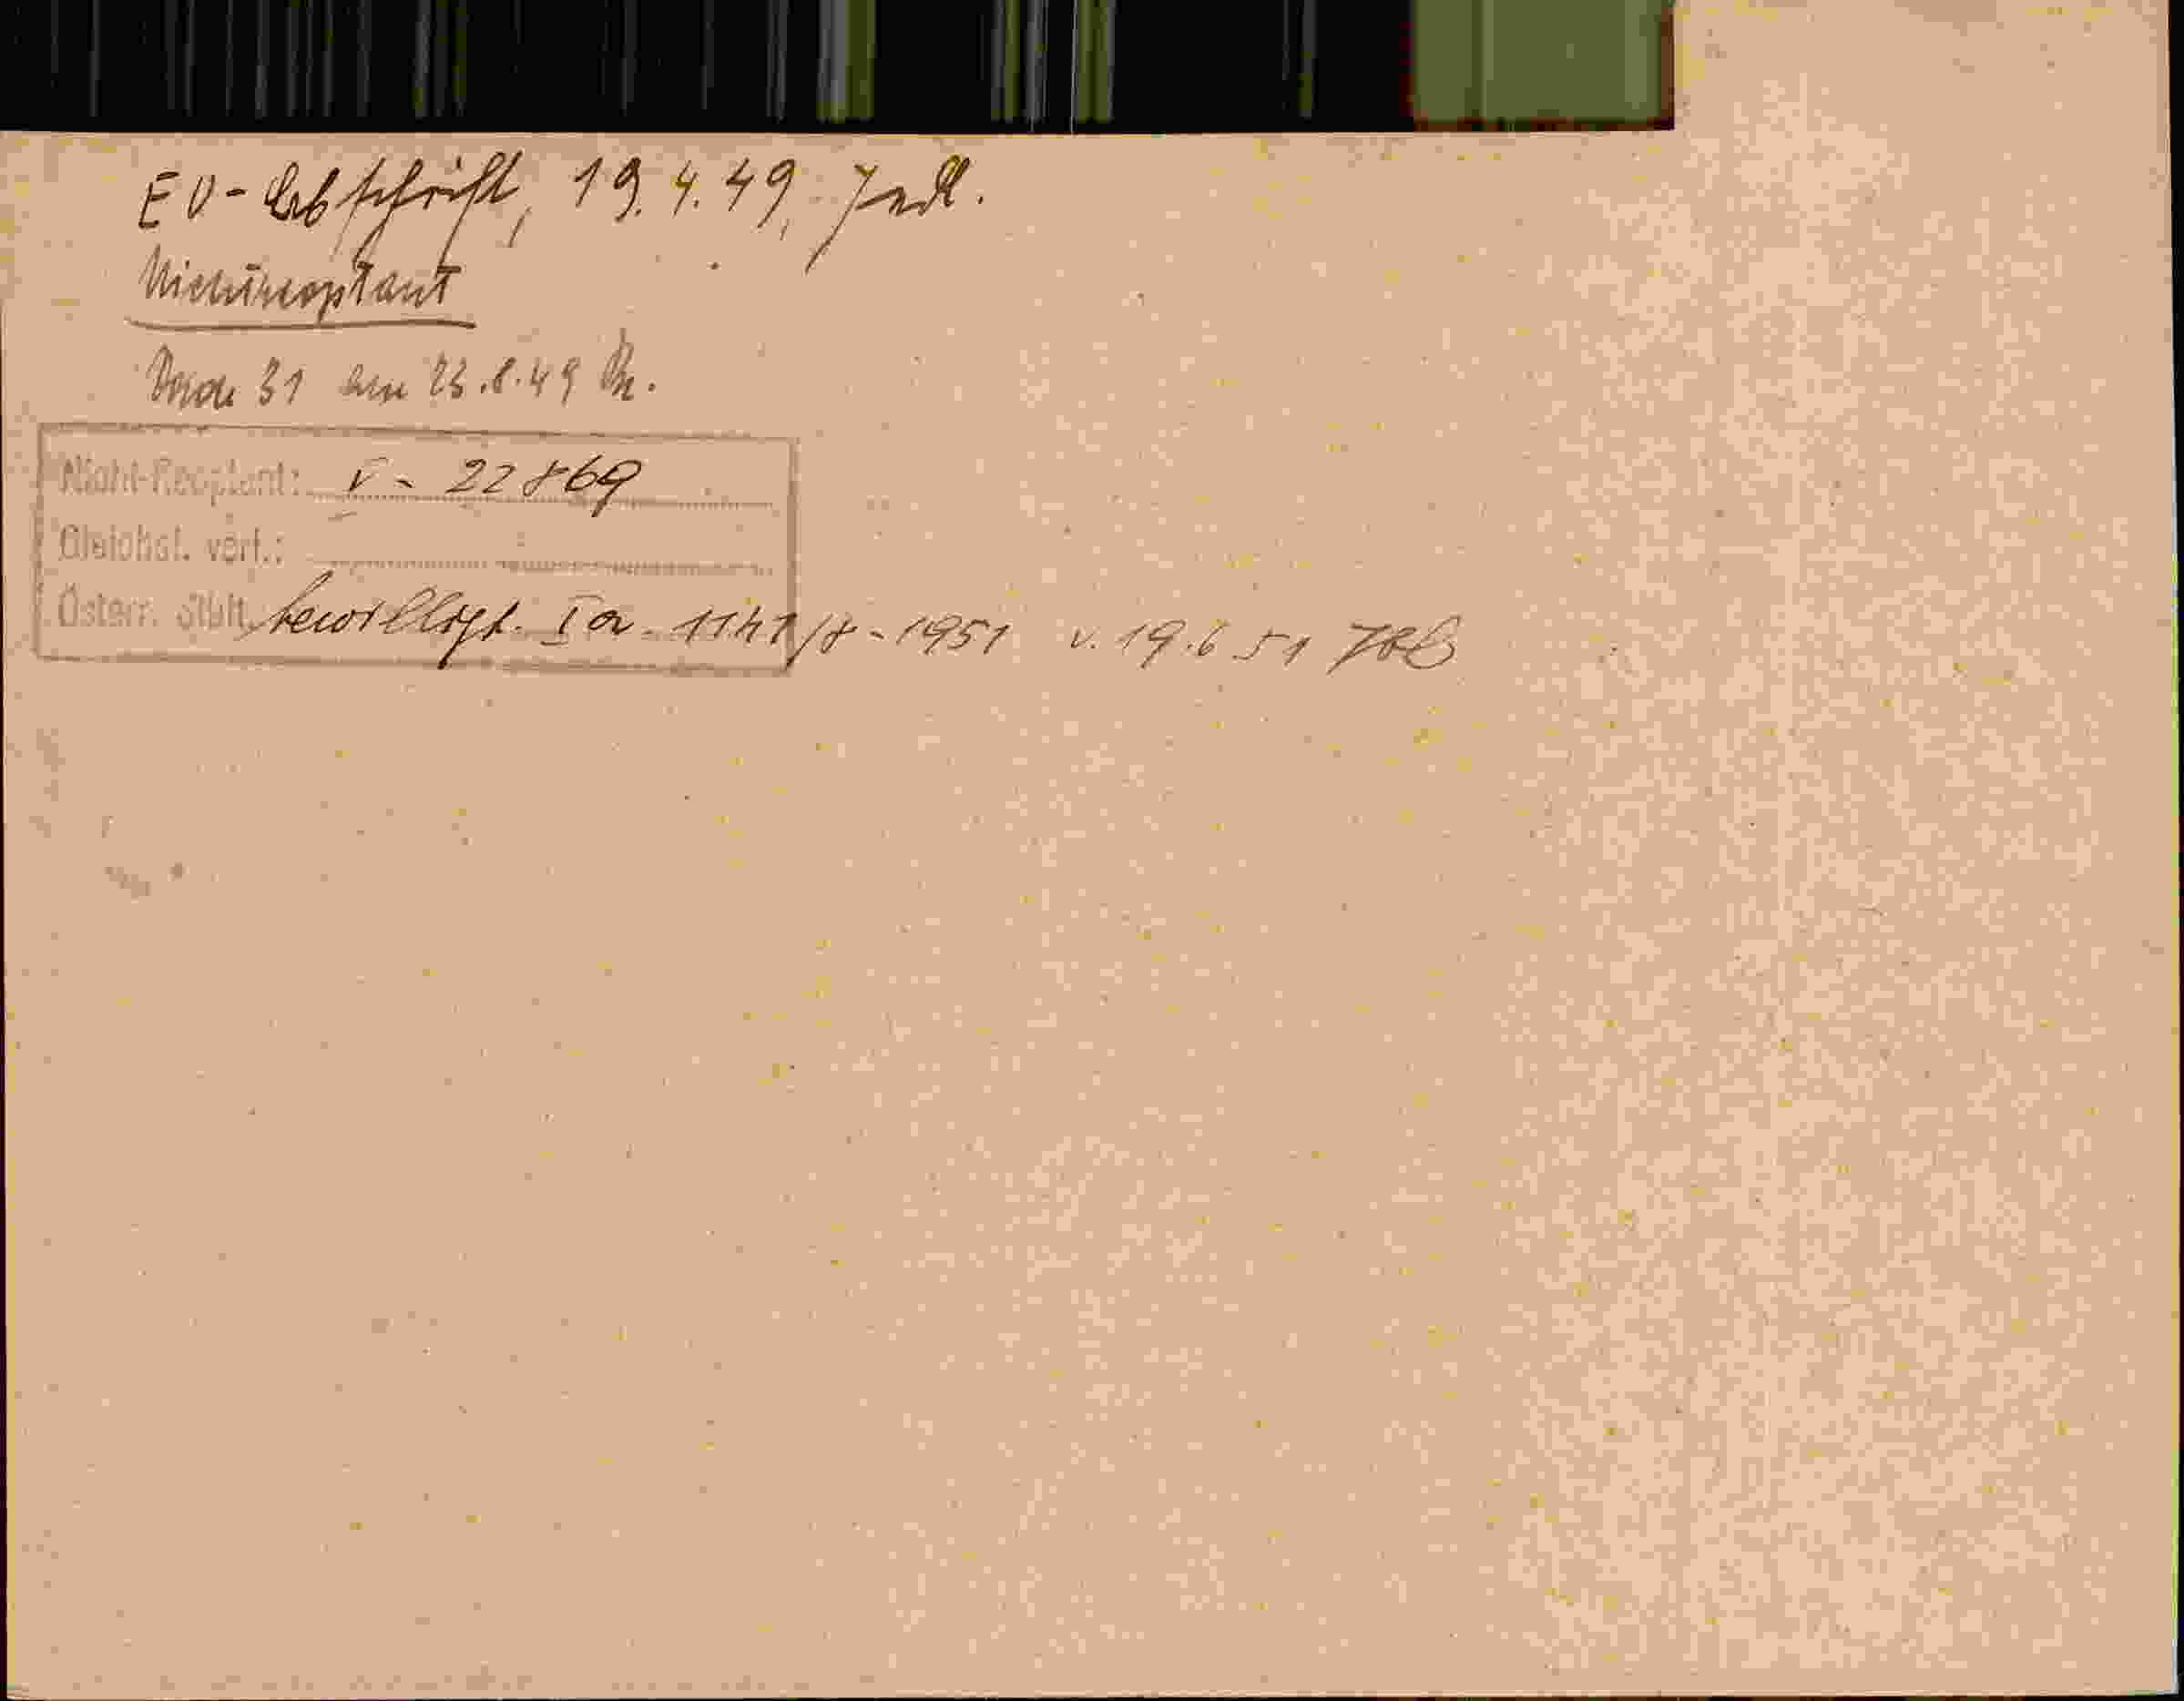 EV-Abschrift, 19.4.49, Jndl.
Nichtreoptant
31 am 23.8.49
Nicht-Reoptant: V - 22869
Gleichst. verf.:
Österr. stblt. bewilligt. Ia - 1141/8 - 1951 v. 19.6.51